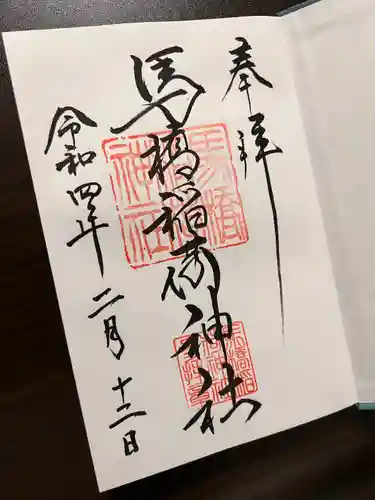 奉拝
馬橋稲荷神社
令和四年二月十二日
馬橋
神社